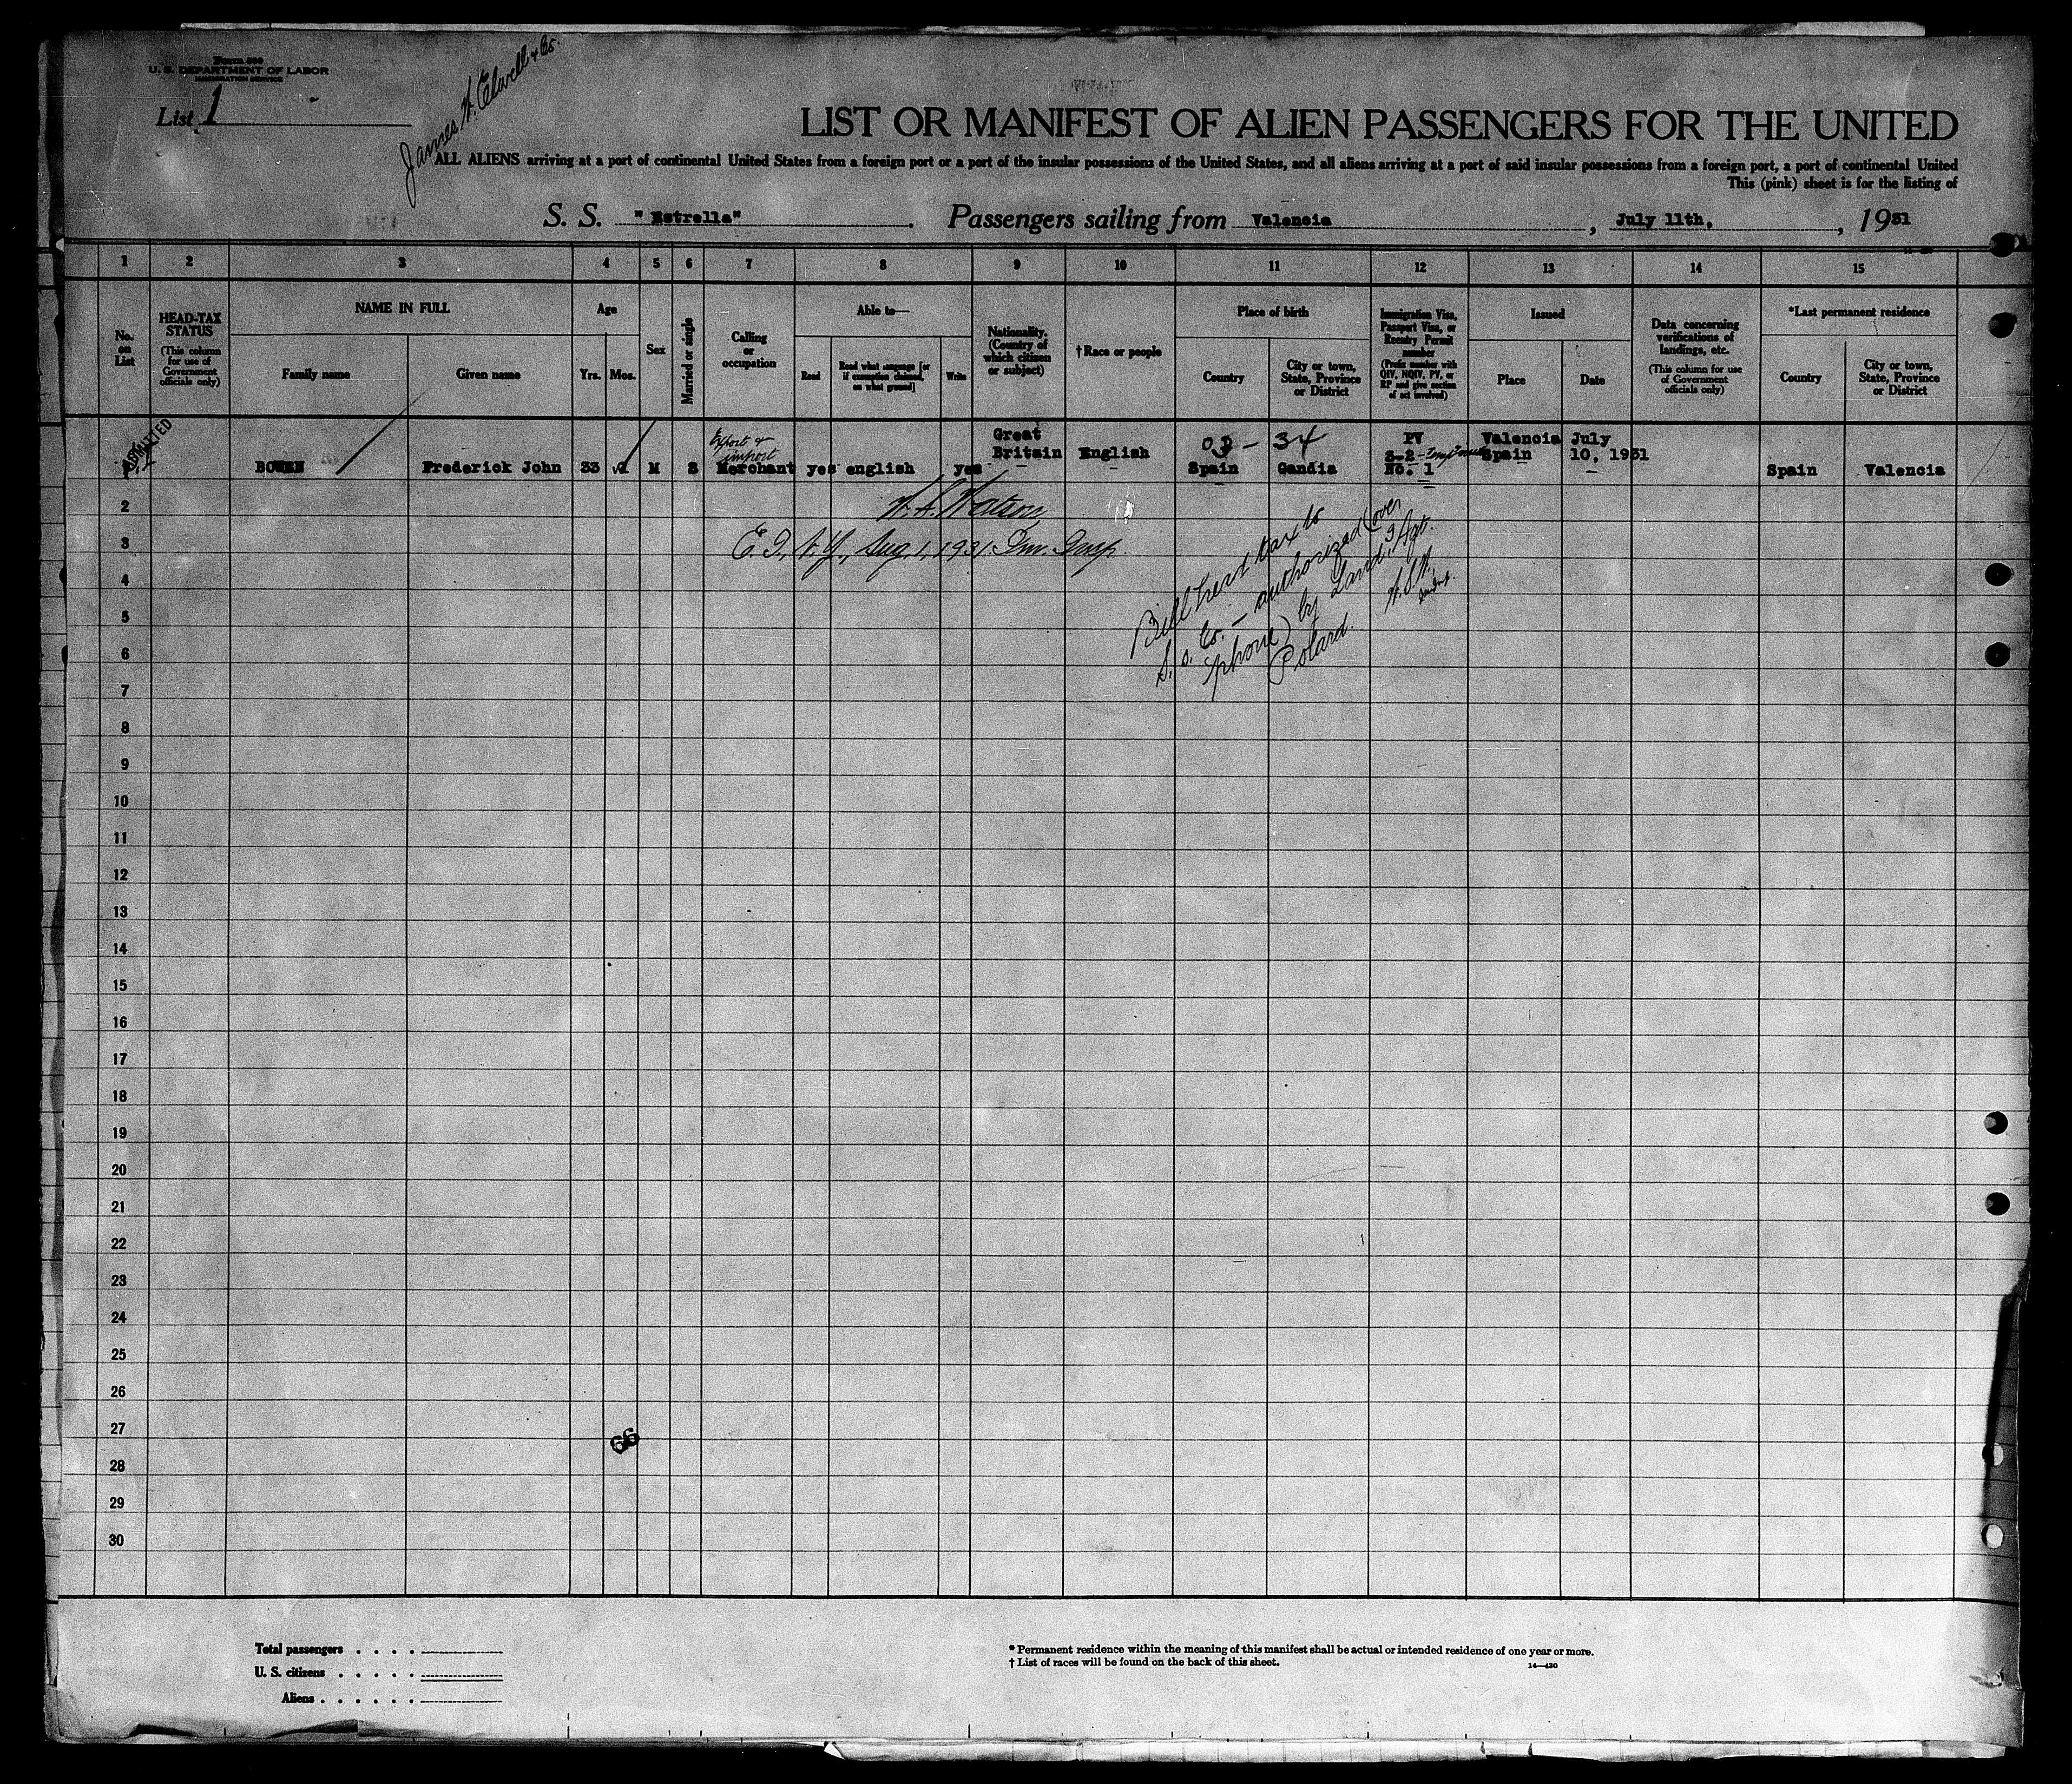 Form 500
U. S. DEPARTMENT OF LABOR
IMMIGRATION SERVICE
List 1
James W. Elwell & Co.
LIST OR MANIFEST OF ALIEN PASSENGERS FOR THE UNITED
ALL ALIENS arriving at a port of continental United States from a foreign port or a port of the insular possessions of the United States, and all aliens arriving at a port of said insular possessions from a foreign port, a port of continental United
This (pink) sheet is for the listing of
S. S. "Estrella". Passengers sailing from Valencia, July 11th, , 1931
1 2 3 4 5 6 7 8 9 10 11 12 13 14 15
No. on List
HEAD-TAX STATUS
(This column for use of Government officials only)
NAME IN FULL
Family name
Given name
Age
Yrs.
Mos.
Sex
Married or single
Calling or occupation
Able to—
Read
Read what language [or if exemption claimed, on what ground]
Write
Nationality. (Country of which citizen or subject)
† Race or people
Place of birth
Country
City or town, State, Province or District
Immigration Visa, Passport Visa, or Reentry Permit number
(Prefix number with QIV, NQIV, PV, or RP and give section of act involved)
Issued
Place
Date
Data concerning verifications of landings, etc.
(This column for use of Government officials only)
*Last permanent residence
Country
City or town, State, Province or District
ADMITTED
Export & import
Great
03 - 34
PV
Valencia July
Britain English
3-2
Spain 10, 1931
1 BOWEN Frederick John 33 M S Merchant yes english yes
Spain Gandia
No. 1
Spain Valencia
2
W. A. Watson
3
E. I., N.Y., Aug. 1, 1931 Im. Insp.
Bill head tax to
S. S. Co. — authorized (over
'phone) by Land'g Agt.
Polard.
4
5
6
7
8
9
10
11
12
13
14
15
16
17
18
19
20
21
22
23
24
25
26
27
66
28
29
30
Total passengers . . . .
U. S. citizens . . . . .
Aliens . . . . . .
* Permanent residence within the meaning of this manifest shall be actual or intended residence of one year or more.
† List of races will be found on the back of this sheet.
14—430